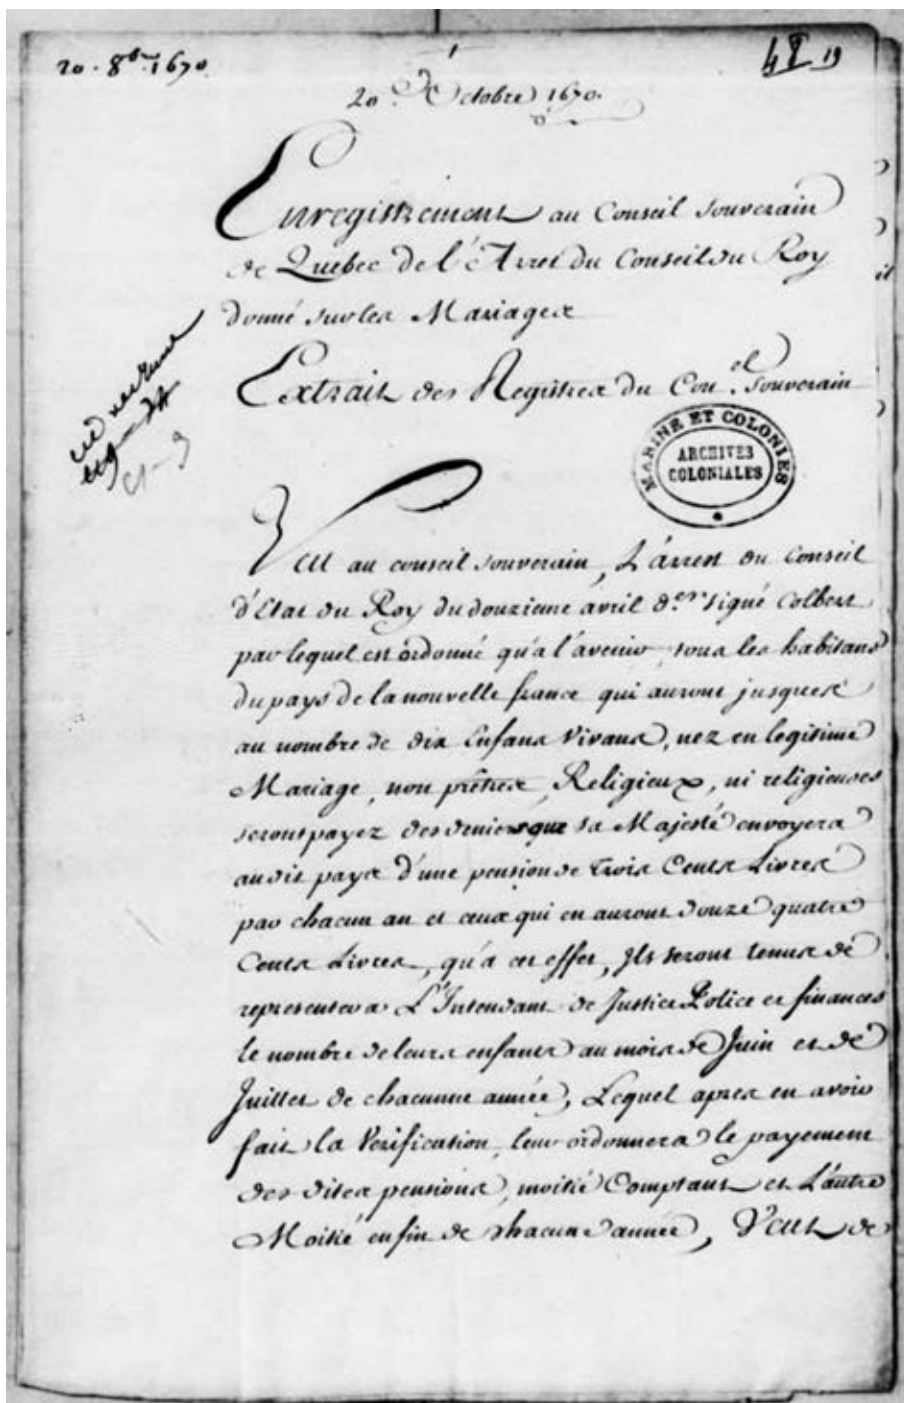 20. 8bre 1670.
19
20e Octobre 1670.
Enregistrement au Conseil souverain
de Quebec de l'Arrest du Conseil du Roy
donné sur les Mariages
Extrait des Registres du Conel. souverain
MARINE ET COLONIES
ARCHIVES
COLONIALES
VEU au conseil souverain, L'arrest du Conseil
d'Etat du Roy du douzieme avril der. signé Colbert
par lequel est ordonné qu'a l'avenir, tous les habitans
du pays de la nouvelle france qui auront jusques
au nombre de dix Enfans Vivans, nez en legitime
Mariage, non prêtres, Religieux, ni religieuses
seront payez des deniers que sa Majesté envoyera
audit pays d'une pension de trois Cents Livres
par chacun an et ceux qui en auront douze quatre
Cents Livres, qu'a cet effet, Ils seront tenus de
representer a L'Intendant de Justice Police et finances
le nombre de leurs enfants au mois de Juin et de
Juillet de chacunne année, Lequel apres en avoir
fait la Verification, leur ordonnera le payement
des dites pensions, moitié Comptant et L'autre
Moitié en fin de chacune année, Veut de